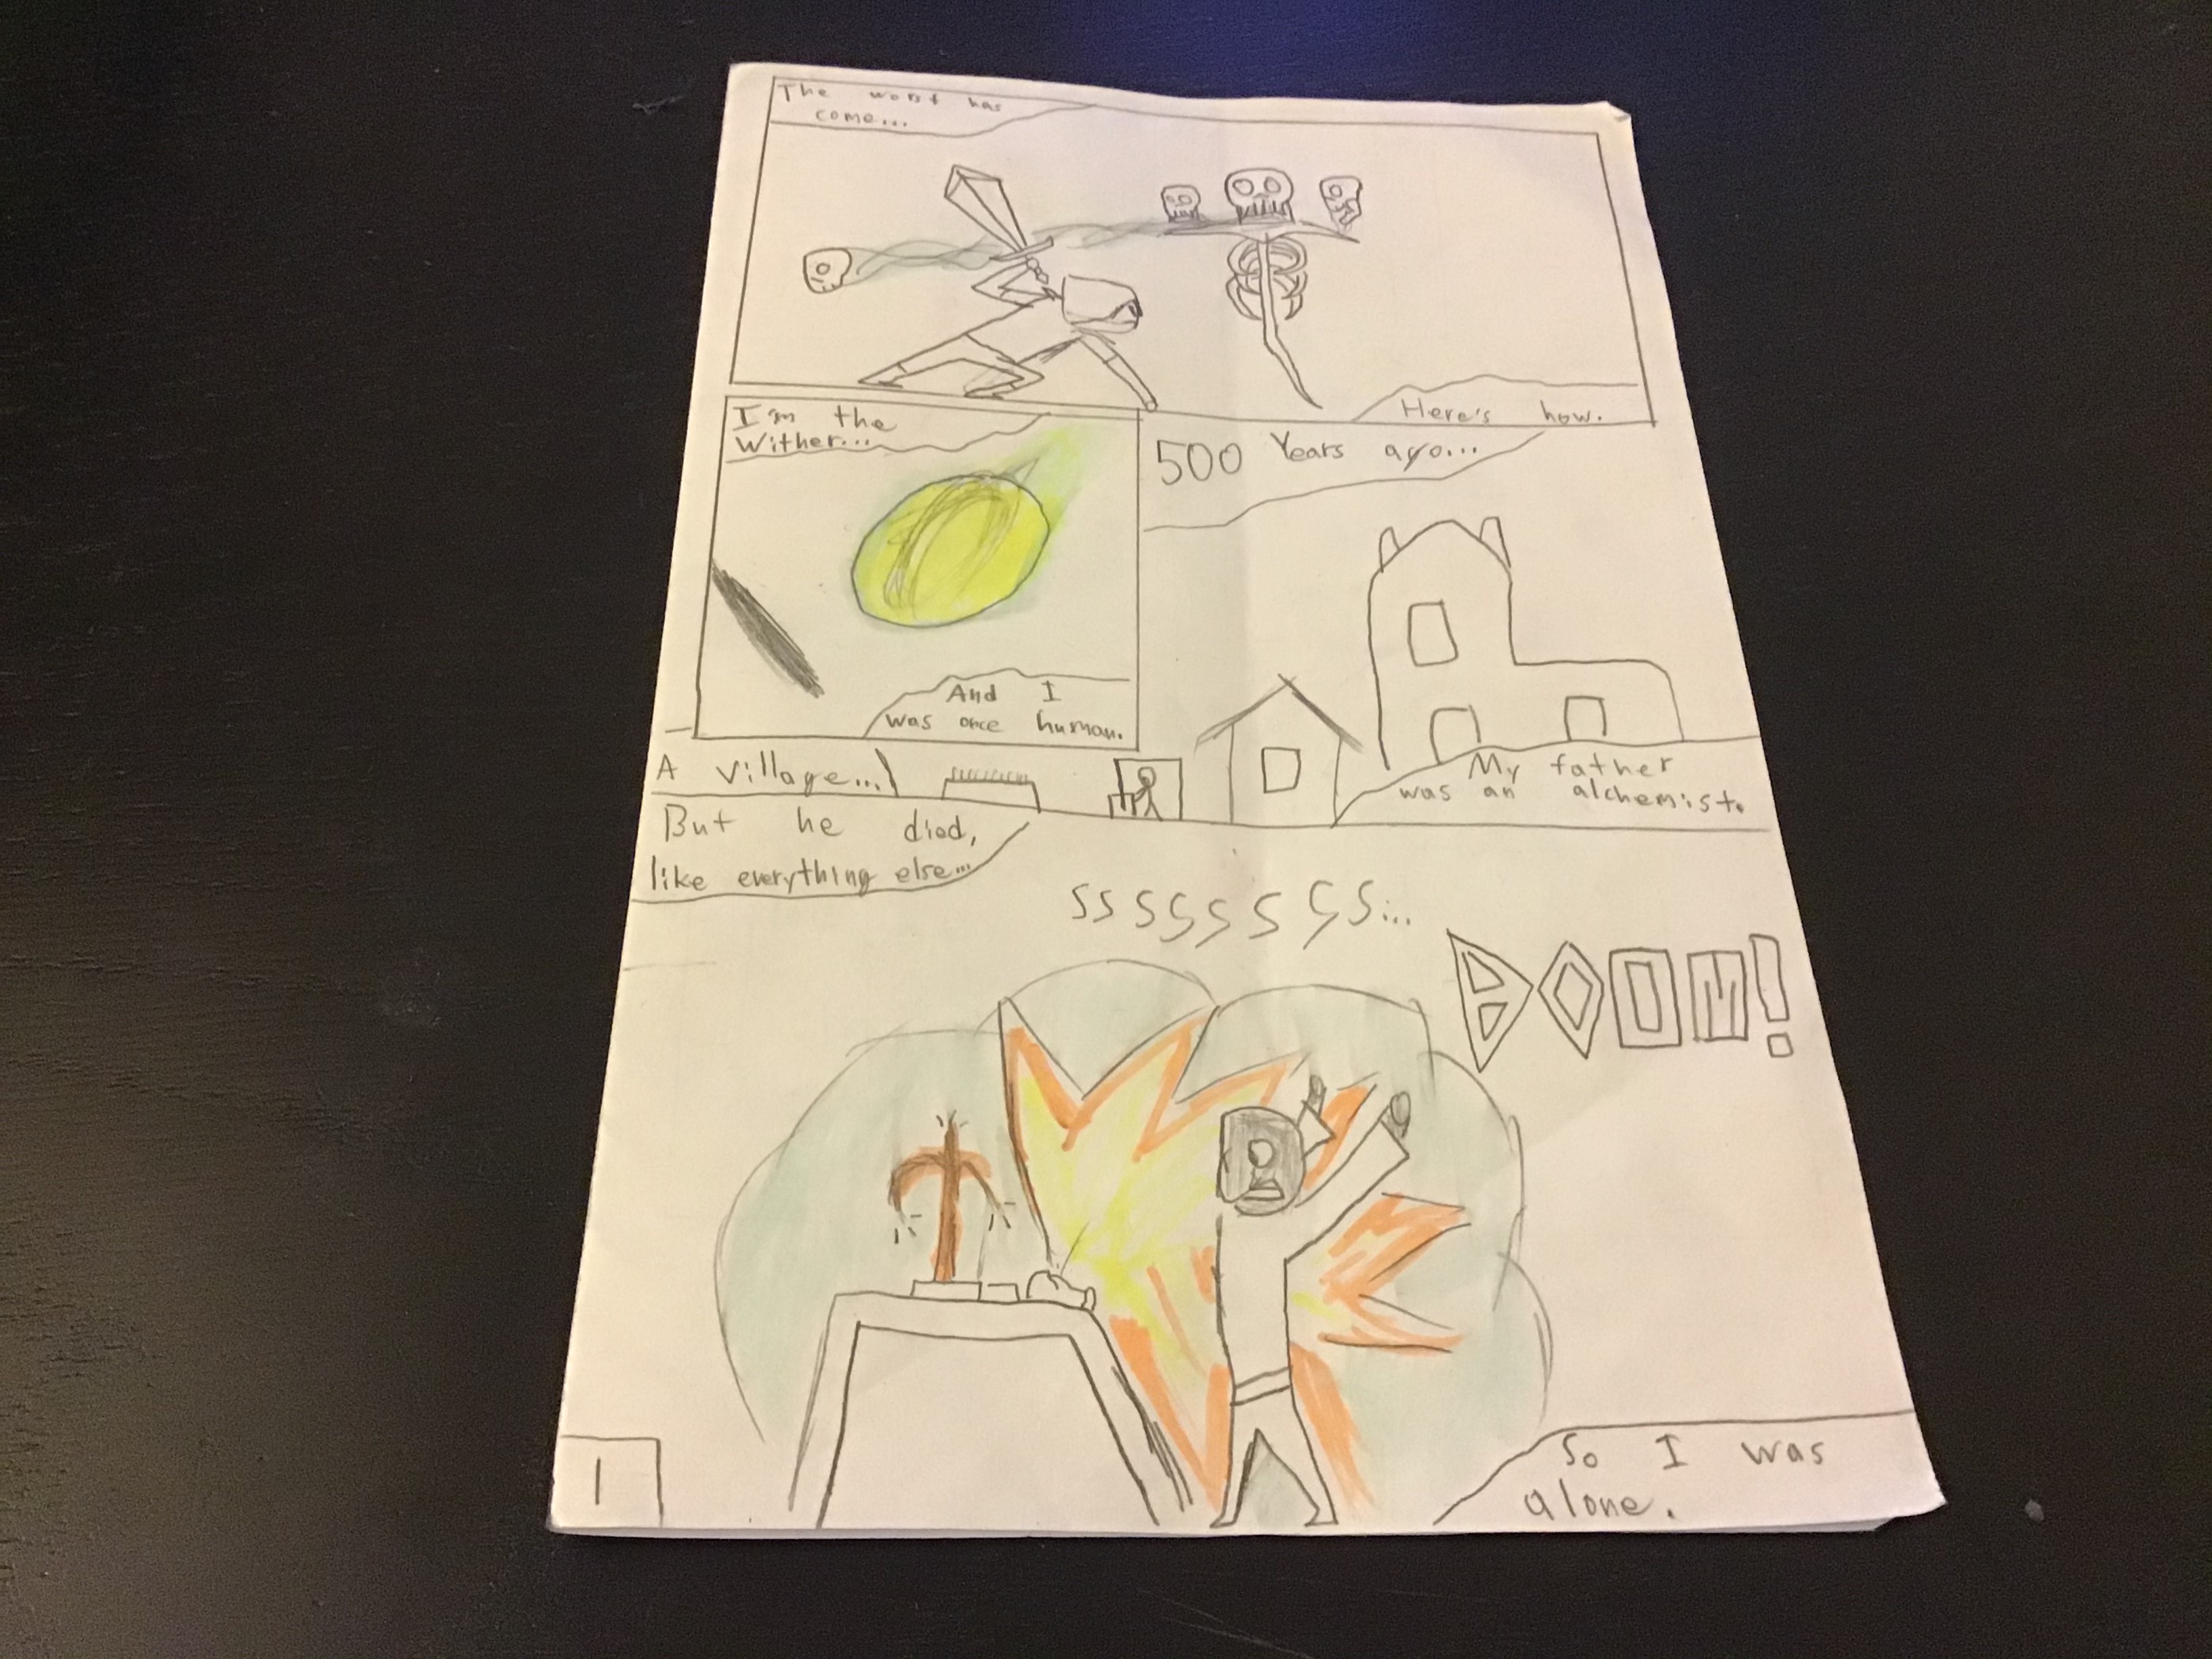 The worst has
come...
Here's how.
I'm the
Wither...
And I
was once human.
500 Years ago...
A village...
My father
was an alchemist.
But he died,
like everything else...
ssssssss...
BOOM!
So I was
alone.
1